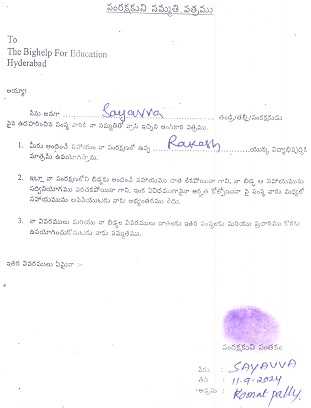 సంరక్షకుని సమ్మతి పత్రము
To
The Bighelp For Education
Hyderabad
అయ్యా!
నేను అనగా Sayavva తండ్రి/తల్లి/సంరక్షకుడు
పైన ఉదహరించిన సంస్థ వారికి నా సమ్మతితో వ్రాసి ఇచ్చిన అంగీకార పత్రము.
1. మీరు అందించే సహాయం నా సంరక్షణలో ఉన్న Rakesh యొక్క విద్యాభివృద్ధికి
మాత్రమే ఉపయోగిస్తాను.
2. ఇట్లు నా సంరక్షణలోని బిడ్డకు అందించే సహాయము దాత లేకపోయినా గాని, నా బిడ్డ ఆ సహాయమును
సద్వినియోగము పరచకపోయినా గాని, ఇంక ఏవిధముగానైనా అర్హత కోల్పోయినా పై సంస్థ వారు మధ్యలో
సహాయమును ఆపివేయుటకు నాకు అభ్యంతరము లేదు.
3. నా వివరములు మరియు నా బిడ్డల వివరములు దాతలకు ఇతర సంస్థలకు మరియు ప్రచారము కొరకు
ఉపయోగించుకొనుటకు నాకు సమ్మతము.
ఇతర వివరములు ఏమైనా :-
సంరక్షకుని సంతకం
పేరు : SAYAVVA
తేది : 11-9-2024
అడ్రసు : Komatpally.